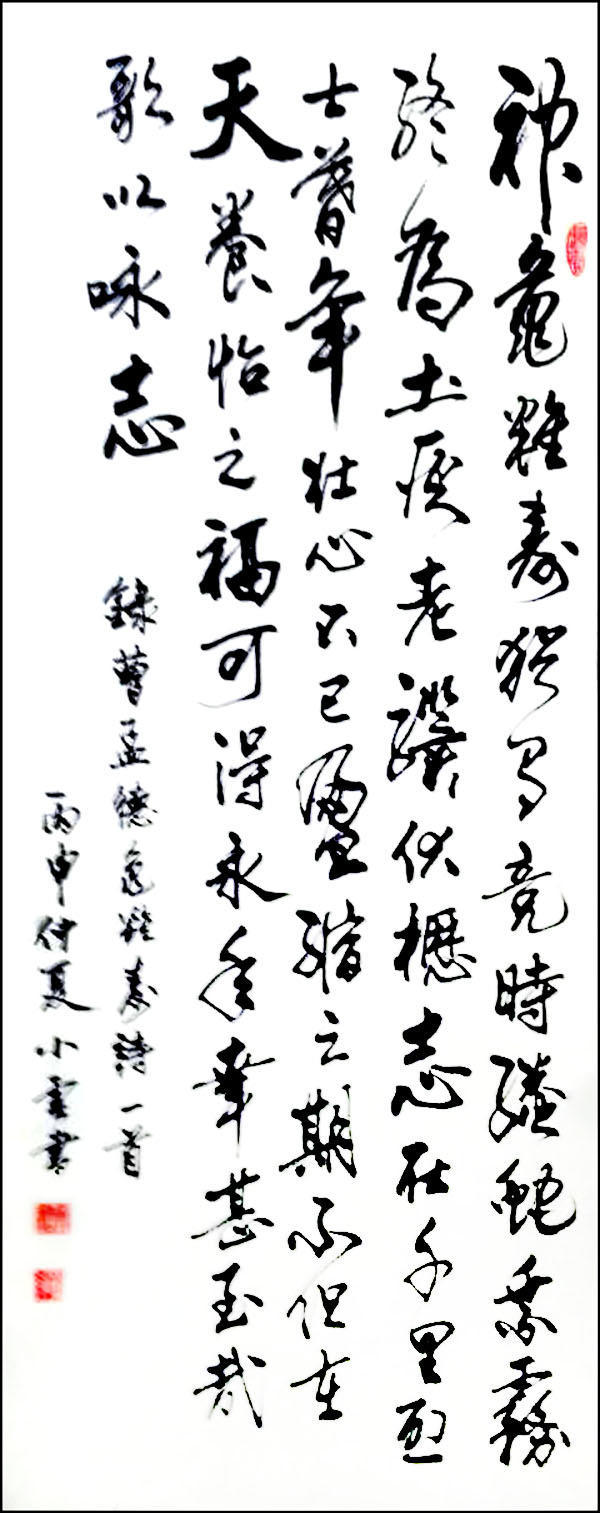 神龜雖壽猶有竟時螣蛇乘霧
終為土灰老驥伏櫪志在千里烈
士暮年壯心不已盈縮之期不但在
天養怡之福可得永年幸甚至哉
歌以咏志
錄曹孟德龜雖壽詩一首
丙申仲夏小雲書